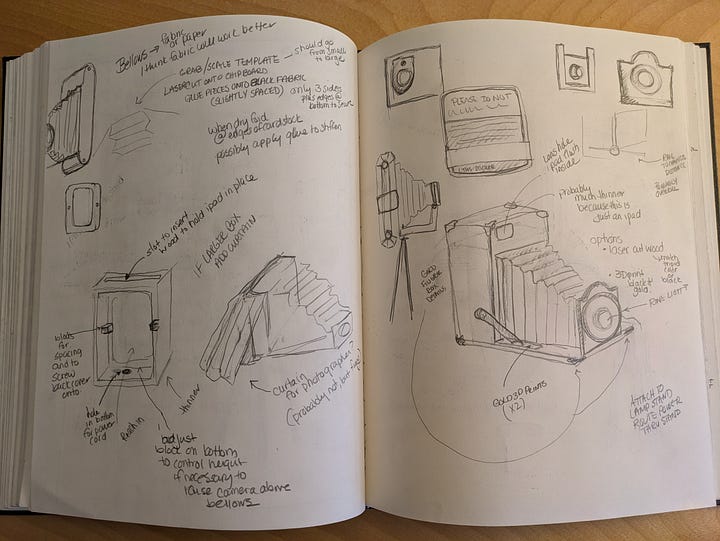 Bellows → fabric
or paper
I think fabric will work better
GRAB/SCALE TEMPLATE — should go
from small
to large
LASERCUT ONTO CHIPBOARD
GLUE PIECES ONTO BLACK FABRIC
(SLIGHTLY SPACED) only 3 sides
plus edges @
bottom to secure
when dry fold
@ edges of cardstock
possibly apply glue to stiffen
slot to insert
wood to hold ipad in place
IF LARGER BOX
ADD CURTAIN
blocks
for
spacing
and to
screw
back cover
onto
hole
in bottom
for power
cord
thinner
adjust
block on bottom
to control height
if necessary to
raise camera above
bellows
curtain
for photographer?
(probably not, but
PLEASE DO NOT
Lens hole
ipad flush
inside
probably
much thinner
because this is
just an ipad
options
• laser cut wood
• 3D print
black &
gold
GOLD
FILIGREE
BOX
DETAILS
RING LIGHT?
GOLD 3D PRINTS
(x2)
ATTACH TO
LAMP STAND
ROUTE POWER
THRU STAND